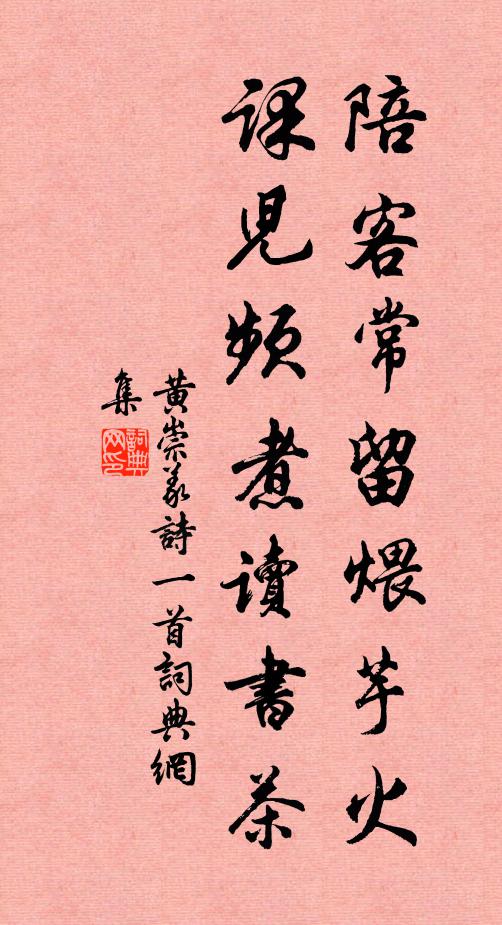 陪客常留煨芋火
課兒頻煮讀書茶
黃崇義詩一首詞典網
集
詞典網印